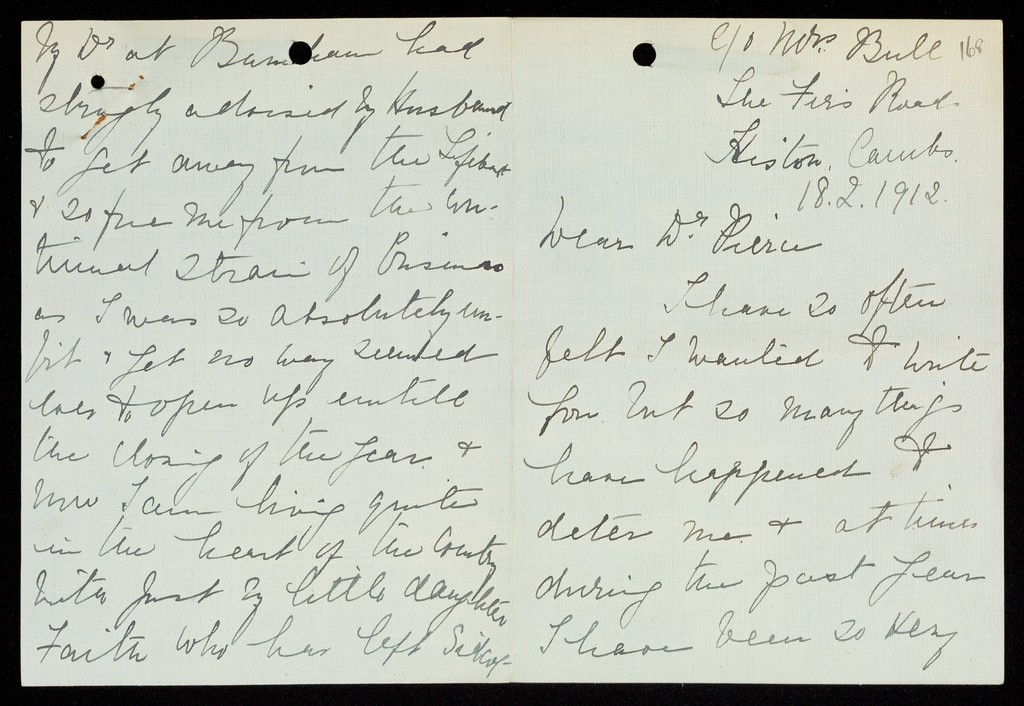 c/o Mrs. Bull 168
The Firs Road
Histon, Cambs.
18.2.1912.
Dear Dr. Pierce
I have so often
felt I wanted to write
you but so many things
have happened to
deter me & at times
during the past year
I have been so very
My Dr at had
strongly advised my Husband
to get away from the
& so free me from the con-
tinual strain of Business
as I was so absolutely un-
fit & yet no way seemed
to open up untill
the closing of the year &
now I am living quite
in the heart of the Country
with just my little daughter
Faith who has left